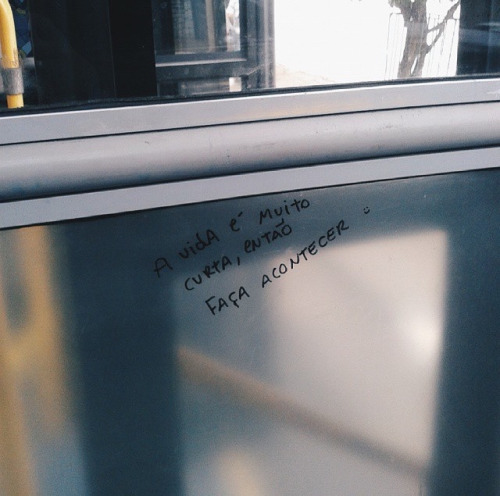 A vidA é MUito
CURtA, ENtÃO
FAÇA ACONTECER :